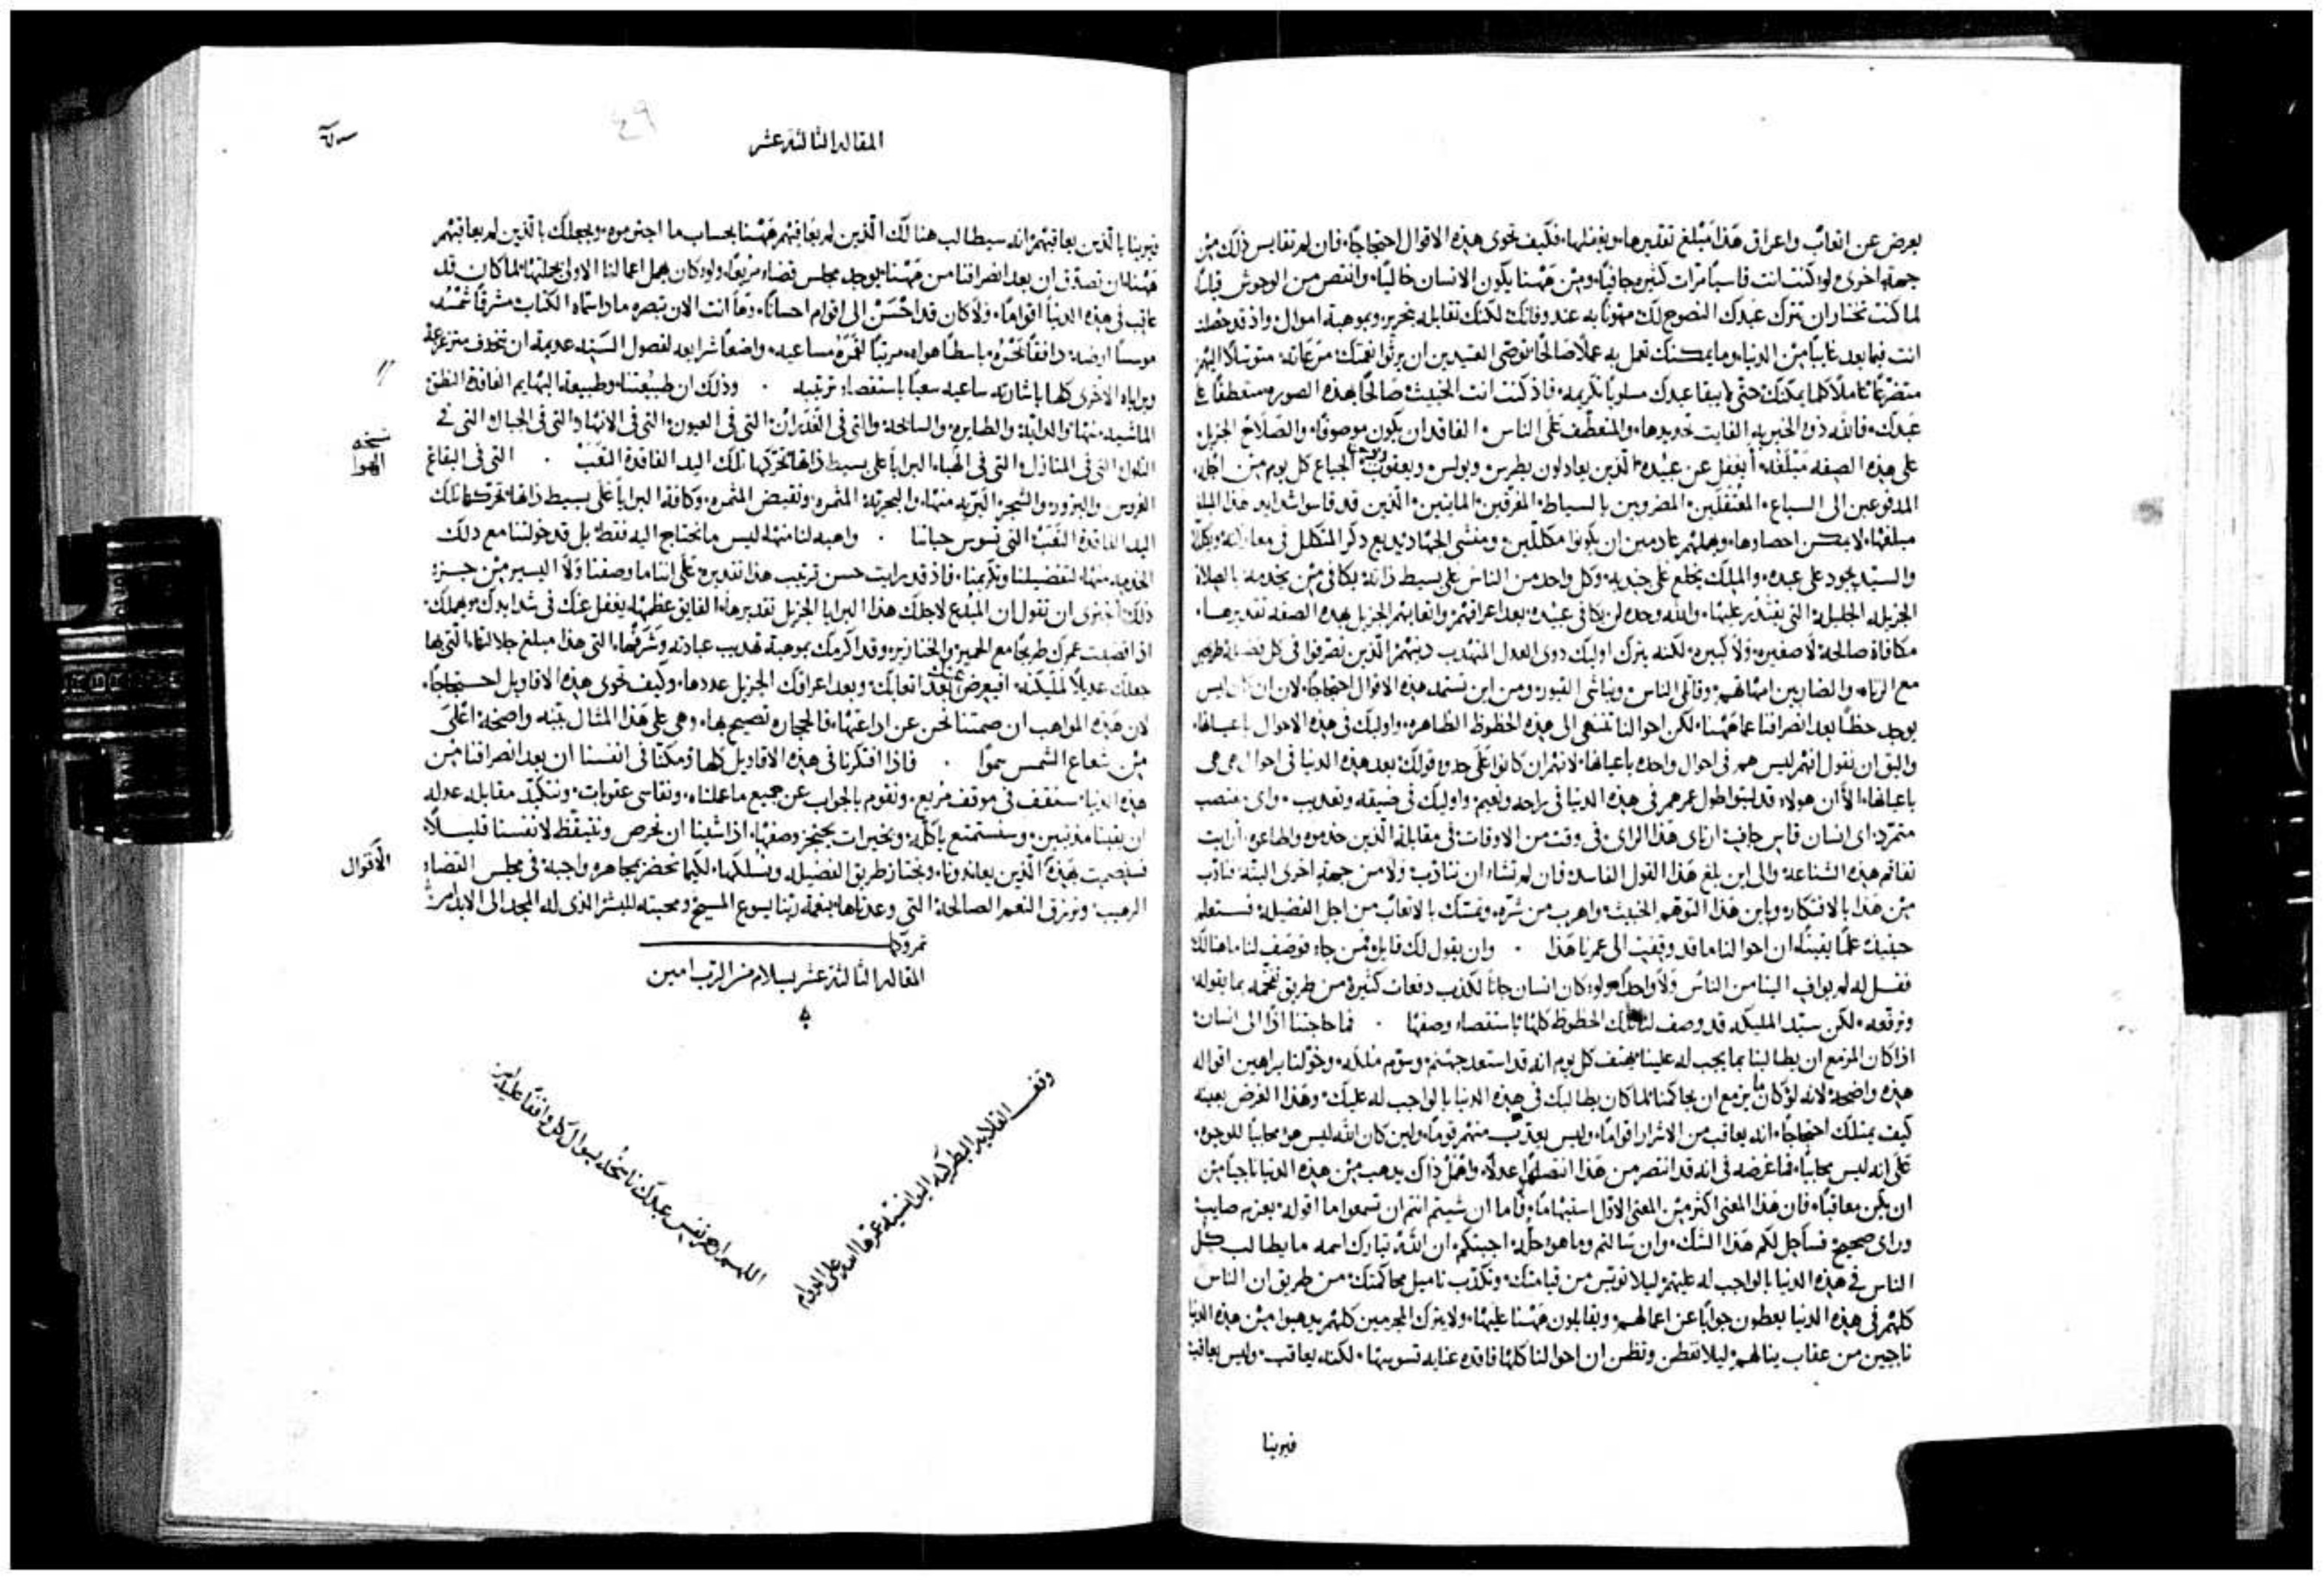 يعرض عن اتعاب واعراق هذا مبلغ تقديرها ويغفلها، فكيف تحوى هذه الاقوال احتجاجًا، فان لم تقايس ذلك من
جهة اخرى، لو كنت انت قاسيًا مرات كثيره جافيًا، ومن ههنا يكون الانسان خاليًا، وانقص من الوحوش قليلًا
لما كنت تختار ان تترك عبدك النصوح لك مهونًا به عند وفاتك، لكنك تقابله بتحرير وبموهبة اموال، واذ قد حصلت
انت فيما بعد غايبًا من الدنيا، وما يمكنك تعمل به عملًا صالحًا، توصى العتيدين ان يرثوا نعمتك، متوسلًا اليهم
متضرعًا عاملًا كلما يمكنك حتى لا يبقا عبدك مسلوبًا تكريمه، فاذ كنت انت الخبيث صالحًا بهذه الصوره متعطفًا على
عبدك، فالله ذو الخيريه الفايت تحديدها، والتعطف على الناس الفاقد ان يكون موصوفًا، والصلاح الجزيل
على هذه الصفه مبلغه، أيغفل عن عبيده الذين يعادلون بطرس وبولس ويعقوب الجياع كل يوم من اجله
المدفوعين الى السباع، المعتقلين، المضروبين بالسياط، المغرقين، المايتين، الذين قد قاسوا شدايد هذا المبلغ
مبلغها، لا يمكن احصاوها، ويهملهم عادمين ان يكونوا مكللين،
والسيد يجود على عبده، والملك يخلع على جنديه، وكل واحد من الناس على بسيط ذاته يكافى من يخدمه بالصلاة
الجزيله الجليله التى يقتدر عليها، والله وحده لن يكافى عبيده بعد اعراقهم واتعابهم الجزيل بهذه الصفه تقديرها،
مكافاة صالحة لا صغيره ولا كبيره، لكنه يترك اوليك ذوى العدل
مع الزناه والضاربين امهاتهم، وقاتلى الناس، ونباشى القبور، ومن اين تستمد هذه الاقوال احتجاجًا، لان ان كان ليس
يوجد حظًا بعد انصرافنا عما ههنا، لكن احوالنا تنتهى الى هذه الحظوظ الظاهره، واوليك فى هذه الاحوال باعيانها،
واليق ان نقول انهم ليس هم فى احوال واحده باعيانها، لانهم ان كانوا على حدو قولك بعد هذه الدنيا فى احوال هى هى
باعيانها، الا ان هولاء قد لبثوا طول عمرهم فى هذه الدنيا فى راحه ونعيم، واوليك فى ضيقه وتعذيب، واى مغتصب
متمرد، اى انسان قاس جاف ارتاى هذا الراى فى وقت من الاوقات فى مقابلة الذين خدموه واطاعوه، أرايت
تفاقم هذه الشناعه، والى اين بلغ هذا القول الفاسد، فان لم تشاء ان تتادب ولا من جهة اخرى البته، فتادب
من هذا بالافتكار، وباين هذا التوهم الخبيث، واهرب من شره، وتمسك بالاتعاب من اجل الفضيله، فستعلم
حينيذ علمًا يقينًا، ان احوالنا ما قد وقفت الى عمرنا هذا . وان يقول لك قايل، فمن جاء فوصف لنا ما هنالك
فقل له لم يواف الينا من الناس ولا واحدًا، ولو كان انسان جانا لكذب دفعات كثيرة من طريق تفخمه بما يقوله
وترفعه، لكن سيد المليكه قد وصف لنا تلك الحظوظ كلها باستقصاء وصفها . فما حاجتنا اذًا الى انسان
اذا كان المزمع ان يطالبنا بما يجب له علينا يهتف كل يوم انه قد استعد جهنم، وسوم ملكه، وخولنا براهين اقواله
هذه واضحه، لانه لو كان ما يزمع ان يحاكمنا، لما كان يطالبك فى هذه الدنيا بالواجب له عليك، وهذا الغرض بعينه
كيف يمتلك احتجاجًا، انه يعاقب من الاشرار اقوامًا، وليس يعذب منهم قومًا، ولين كان الله ليس هو محابيًا للوجوه،
على انه ليس محابيًا، فما غرضه فى انه قد انتصر من هذا انتصارًا عدلًا، واهمل ذاك يذهب من هذه الدنيا ناجيًا من
ان يكن معاقبًا، فان هذا المعنى اكثر من المعنى الاول استبهامًا، فاما ان شيتم انتم ان تسمعوا ما اقوله بعزم صايب
وراى صحيح فساحل لكم هذا الشك، وان سالتم وما هو حله، اجبتكم، ان الله تبارك اسمه ما يطالب كل
الناس فى هذه الدنيا بالواجب له عليهم، ليلا تويس من قيامتك، وتكذب تاميل محاكمتك، من طريق ان الناس
كلهم فى هذه الدنيا يعطون جوابًا عن اعمالهم، ويقابلون ههنا عليها، ولا يترك المجرمين كلهم يذهبوا من هذه الدنيا
ناجين من عقاب ينالهم، ليلا تفطن وتظن ان احوالنا كلها فاقده عنايه تسوسها، لكنه يعاقب، وليس يعاقب
فيرينا
المقاله الثالثة عشر
٤٩
فيرينا بالذين يعاقبهم، انه سيطالب هنالك الذين لم يعاقبهم ههنا بحساب ما اجترموه، ويجعلك بالذين لم يعاقبهم
ههنا ان تصدق ان بعد انصرافنا من ههنا يوجد مجلس قضاء مريعًا، ولو كان يهمل اعمالنا الاولى بجملتها، لما كان قد
عاقب فى هذه الدنيا اقوامًا، ولا كان قد احسن الى اقوام احسانًا، وها انت الان تبصره
موسسًا ارضه، دافقًا بحره، باسطًا هواه، مرتبًا لقمره مساعيه، واضعًا شرايعه لفصول السنه
وبراياه الاخرى كلها باشارته ساعيه سعيًا باستقصاء ترتيبه . وذلك ان طبيعتنا وطبيعة البهايم الفاقدة النطق
الماشيه منها والدابه، والطايره والسابحه، والتى فى الغدران، التى فى العيون، التى فى الانهار، والتى فى الجبال، التى فى
التلال، التى فى المنازل، التى فى الهباء، البرايا على بسيط ذاتها تحركها تلك اليد الفاقدة التعب . التى فى البقاع
الغروس والبزور، والشجرة البريه منها، والبحريه، المثمره، ونقيض المثمره، وكافة البرايا على بسيط ذاتها تحركها تلك
اليد الفاقدة التعب، التى تسوس حياتنا . واهبه لنا منها، ليس ما نحتاج اليه فقط، بل قد خولتنا مع ذلك
الخدمه منها، لتفضيلنا وتكريمنا، فاذ قد رايت حسن ترتيب هذا تقديره، على اننا ما وصفنا ولا اليسير من جزء
ذلك، أتجترى ان تقول ان المبدع لاجلك هذا البرايا الجزيل تقديرها، الفايق عظمها، يغفل عنك فى شدايدك ويهملك،
اذا قضيت عمرك طريحًا مع الحمير والخنازير، وقد اكرمك بموهبة تهذيب عبادته وشرفها، التى هذا مبلغ جلالتها، التى بها
جعلك عديلًا لمليكته، افيعرض عنك بعد اتعابك، وبعد اعراقك الجزيل عددها، وكيف تحوى هذه الاقاويل احتجاجًا،
لان هذه المواهب ان صمتنا نحن عن اذاعتها، فالحجاره تصيح بها، وهى على هذا المثال بينه واضحه، اعلى
من شعاع الشمس سموًا . فاذا افتكرنا فى هذه الاقاويل كلها، ومكنا فى انفسنا ان بعد انصرافنا من
هذه الدنيا، سنقف فى موقف مريع، ونقوم بالجواب عن جميع ما عملناه، ونقاسى عقوبات، ونتكبد مقابله عدله
ان بقينا مذنبين، وسنستمتع باكله، وبخيرات يعجز وصفها، اذا شينا ان نحرص ونتيقظ لانفسنا قليلًا،
فسنصمت بهذه الذين يعاندونا، ونختار طريق الفضيله ونسلكها، لكيما نحضر بمجاهره واجبة فى مجلس القضاء
الرهيب، ونرزق النعم الصالحة التى وعدناها، بنعمة ربنا يسوع المسيح ومحبته للبشر الذى له المجد الى الابد امين
نسخه
الهوا
الاقوال
تم وكمل
المقاله الثالثة عشر بسلام من الرب امين
وقف القلايه البطريكيه اليونانيه عمرها الله على الدوام
اللهم ارحم نفس عبدك ناسخه